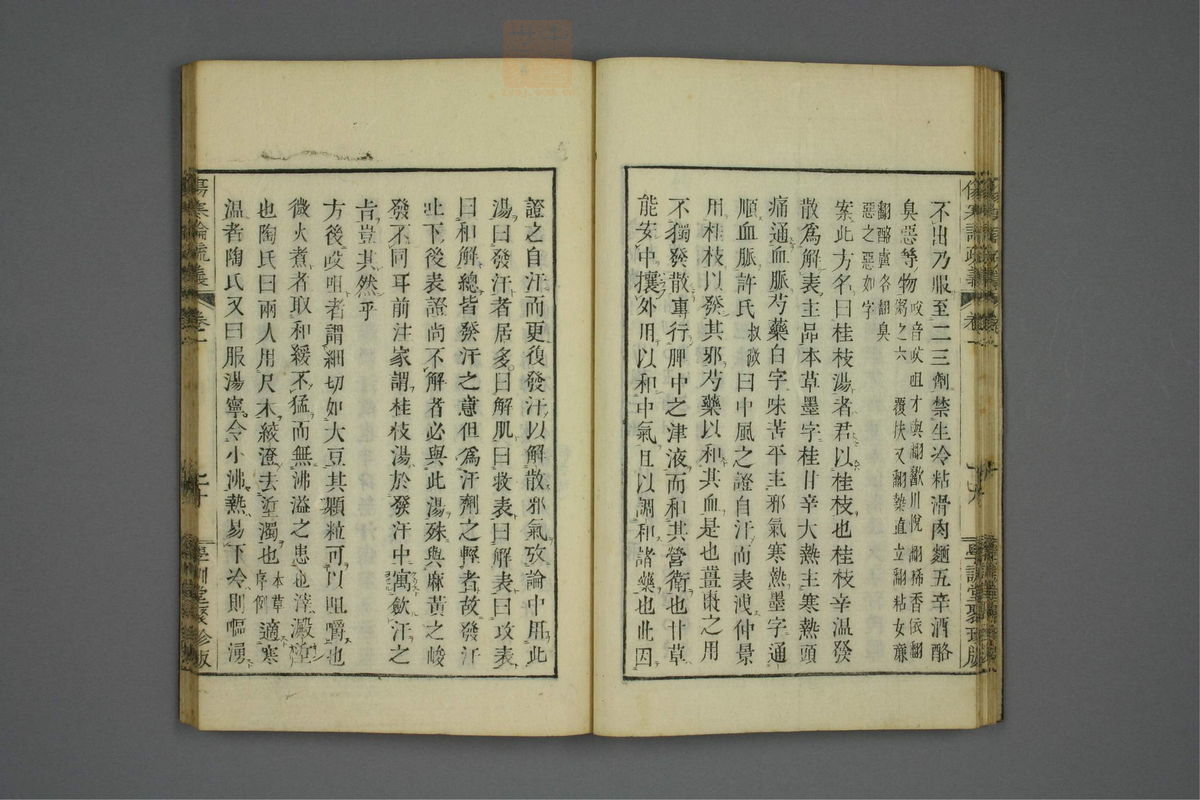 不出乃服至二三劑禁生冷粘滑肉麵五辛酒酪
臭惡等物
㕮音㕮咀才與翻歠川悅翻稀香依翻
粥之六覆扶又翻漐直立翻粘女廉
翻酪盧各翻臭
惡之惡如字
案此方名曰桂枝湯者君以桂枝也桂枝辛温發
散爲解表主品本草墨字桂甘辛大熱主寒熱頭
痛通血脈芍藥白字味苦平主邪氣寒熱墨字通
順血脈許氏叔微曰中風之證自汗而表洩仲景
用桂枝以發其邪芍藥以和其血是也薑棗之用
不獨發散專行脾中之津液而和其營衛也甘草
能安中攘外用以和中氣且以調和諸藥也此因
證之自汗而更復發汗以解散邪氣攷論中用此
湯曰發汗者居多曰解肌曰救表曰解表曰攻表
曰和解總皆發汗之意但爲汗劑之輕者故發汗
吐下後表證尚不解者必與此湯殊與麻黃之峻
發不同耳前注家謂桂枝湯於發汗中寓歛汗之
旨豈其然乎
方後㕮咀者謂細切如大豆其顆粒可以咀嚼也
微火煮者取和緩不猛而無沸溢之患也滓澱垽
也陶氏曰兩人用尺木絞澄去垽濁也
本草
序例
適寒
温者陶氏又曰服湯寧令小沸熱易下冷則嘔湧
傷寒論疏義
卷一
學訓堂聚珍版